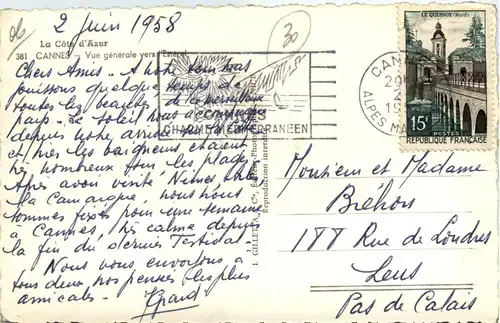 2 Juin 1958
30
La Côte d'Azur
381 CANNES _ Vue générale vers l'Estérel
Chers Amis _ A notre tour nous
jouissons quelque temps de
toutes les beautés de ce merveilleux
pays _ Le soleil nous accompagne
depuis notre arrivée
et hier les baigneurs étaient
très nombreux sur les plages
Après avoir visité Nîmes et
la Camargue, nous nous
sommes fixés pour une semaine
à Cannes, très calme depuis
la fin du dernier Festival
Nous vous envoyons à
tous deux nos pensées les plus
amicales _
CANNES
CHARME MEDITERRANEEN
Reproduction interdite
LE QUESNOY (Nord)
15F
POSTES
REPUBLIQUE FRANÇAISE
CANNES
ALPES MAR
Monsieur et Madame
Bréhon
188 Rue de Londres
Lens
Pas de Calais